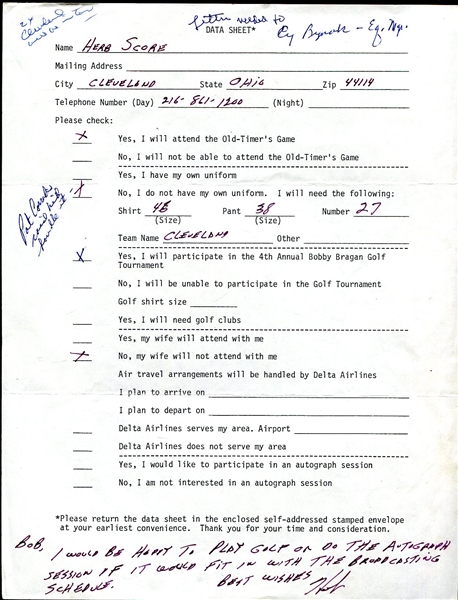 letter writes to
DATA SHEET*
Cy Bynak - Eq. Mgr.
Name HERB SCORE
Mailing Address
City CLEVELAND State OHIO Zip 44114
Telephone Number (Day) 216-861-1200 (Night)
Please check:
X Yes, I will attend the Old-Timer's Game
No, I will not be able to attend the Old-Timer's Game
Yes, I have my own uniform
X No, I do not have my own uniform. I will need the following:
Shirt 48 Pant 38 Number 27
(Size) (Size)
Team Name CLEVELAND Other
X Yes, I will participate in the 4th Annual Bobby Bragan Golf
Tournament
No, I will be unable to participate in the Golf Tournament
Golf shirt size
Yes, I will need golf clubs
Yes, my wife will attend with me
X No, my wife will not attend with me
Air travel arrangements will be handled by Delta Airlines
I plan to arrive on
I plan to depart on
Delta Airlines serves my area. Airport
Delta Airlines does not serve my area
Yes, I would like to participate in an autograph session
No, I am not interested in an autograph session
*Please return the data sheet in the enclosed self-addressed stamped envelope
at your earliest convenience. Thank you for your time and consideration.
BOB,
I WOULD BE HAPPY TO PLAY GOLF OR DO THE AUTOGRAPH
SESSION IF IT WOULD FIT IN WITH THE BROADCASTING
SCHEDULE. BEST WISHES Herb